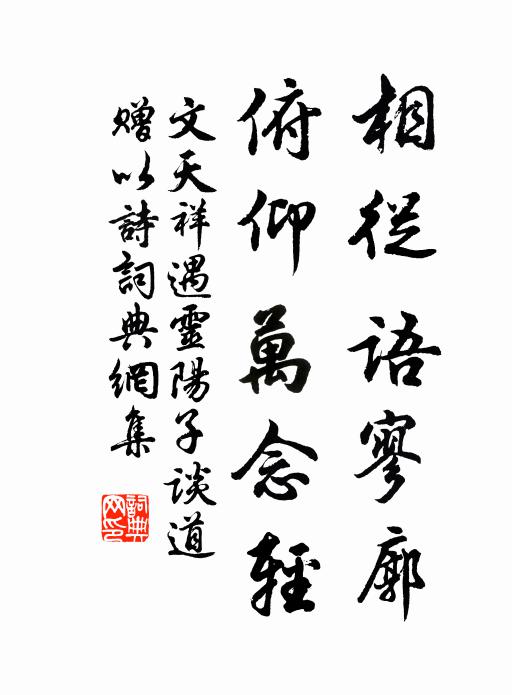 相從語寥廓
俯仰萬念輕
文天祥遇靈陽子談道
贈以詩詞典網集
詞典網印